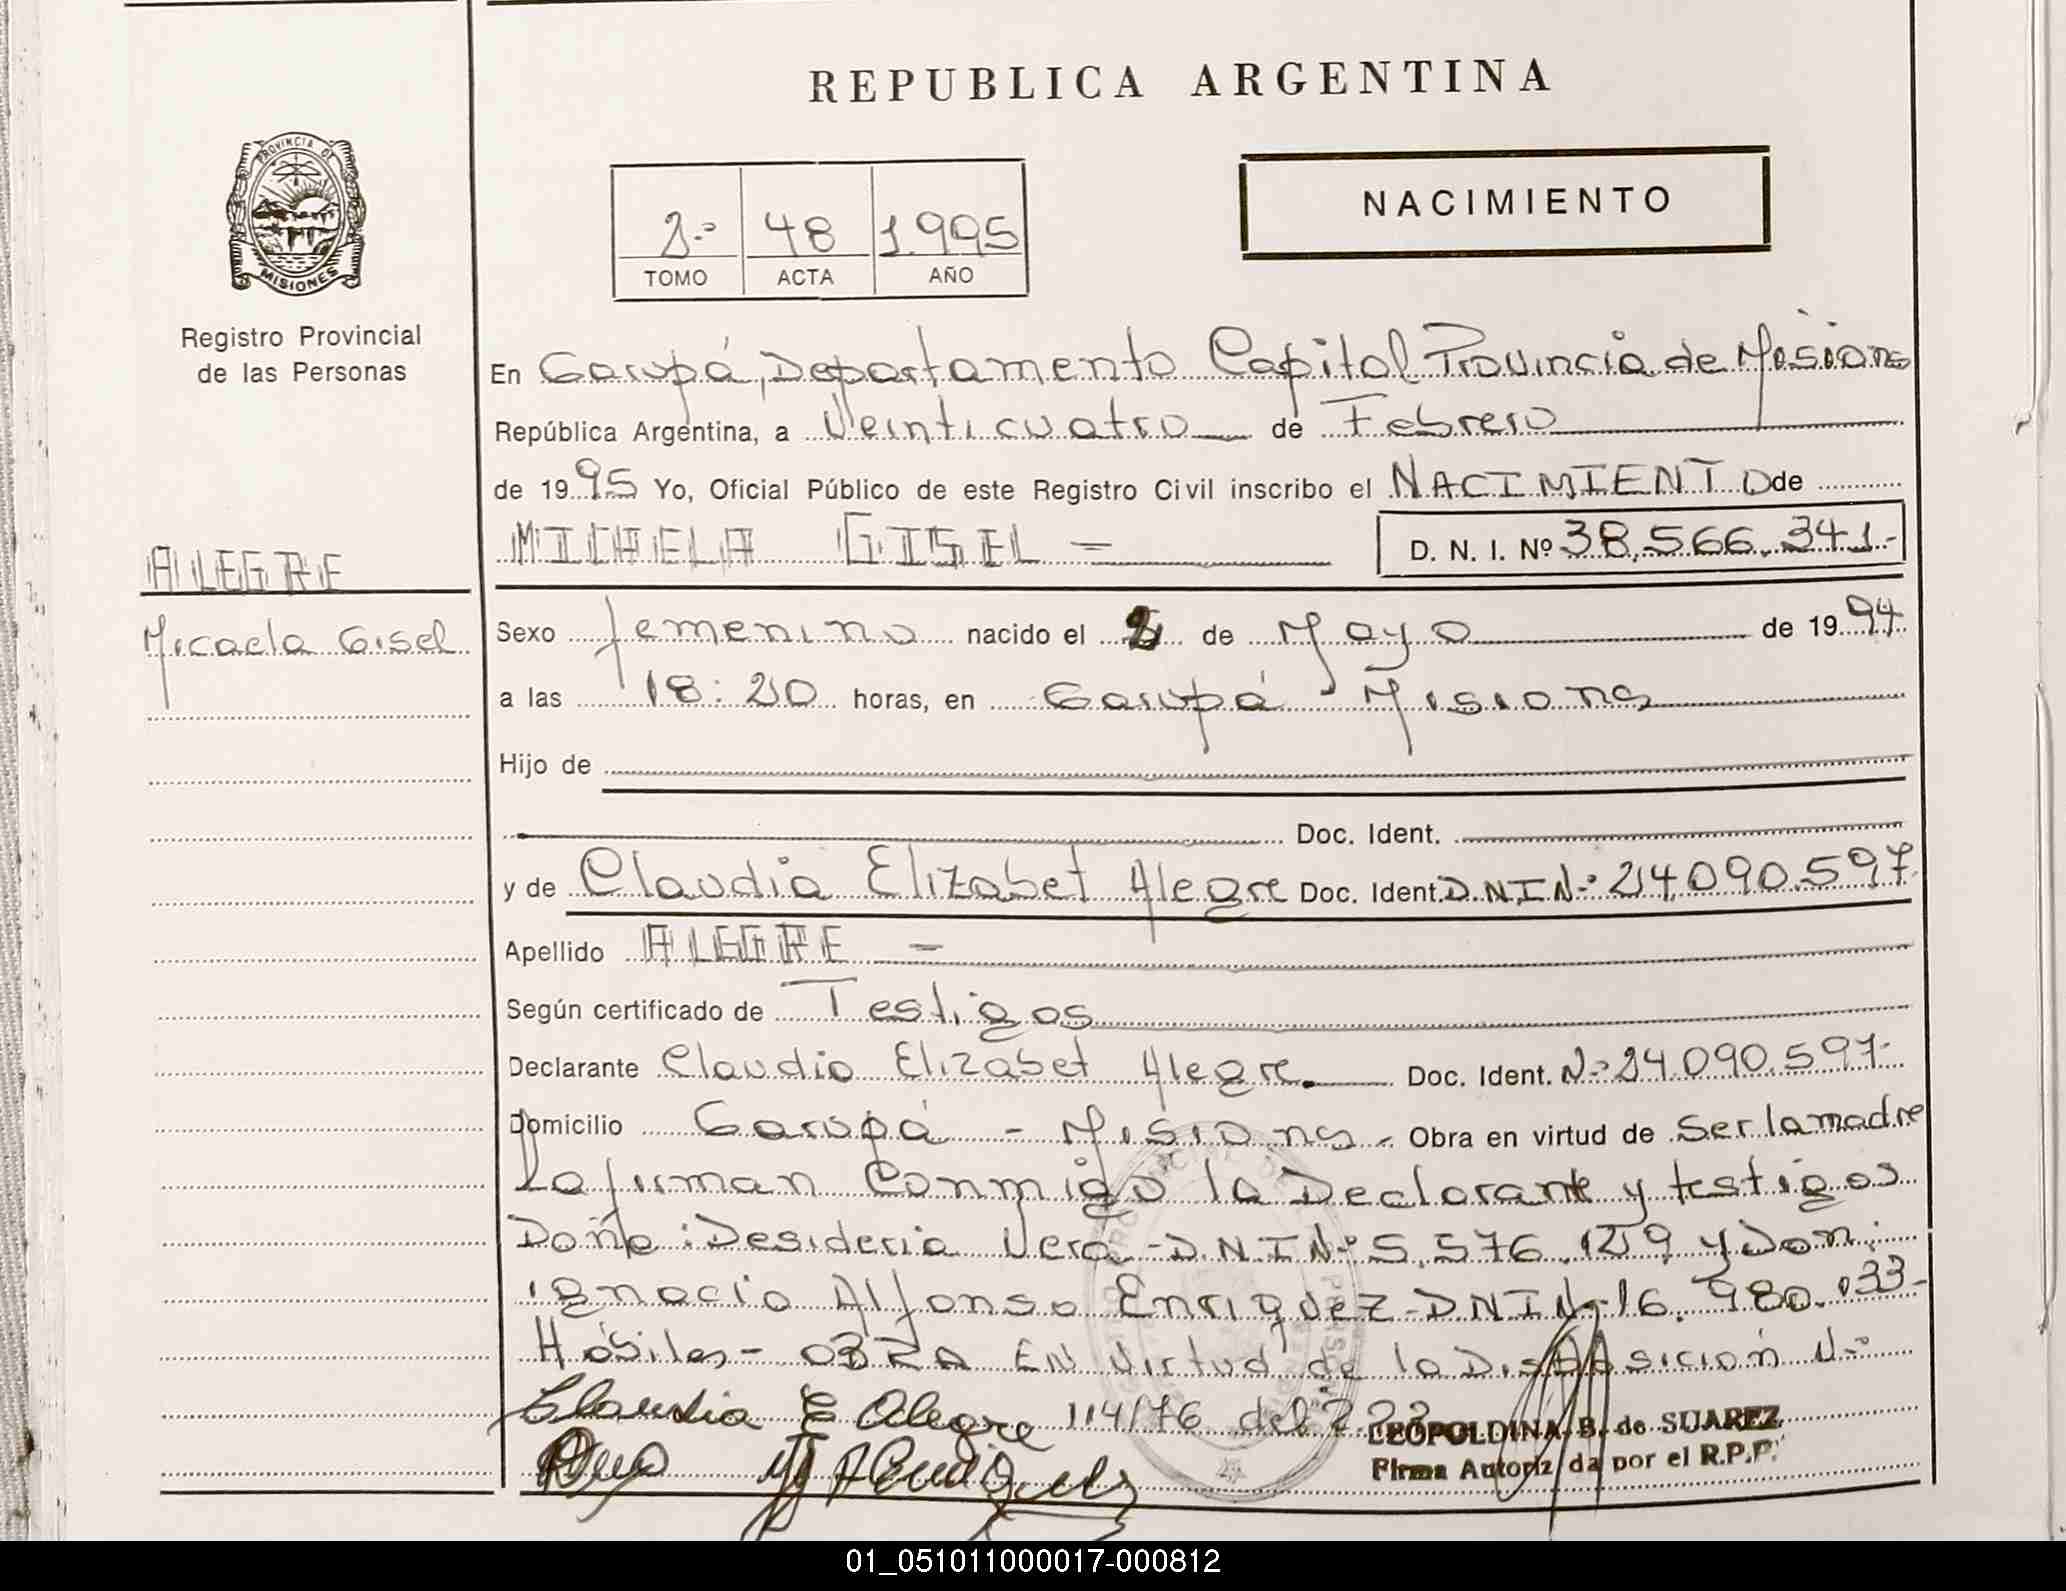 REPUBLICA ARGENTINA
PROVINCIA DE
MISIONES
Registro Provincial
de las Personas
2º
48
1.995
TOMO
ACTA
AÑO
NACIMIENTO
En Garupá, Departamento Capital Provincia de Misiones
República Argentina, a Veinticuatro de Febrero
de 1995 Yo, Oficial Público de este Registro Civil inscribo el NACIMIENTO de
MICHELA GISEL - D. N. I. Nº 38.566.341.-
ALEGRE
Micaela Gisel
Sexo femenino nacido el 2 de Mayo de 1994
a las 18:20 horas, en Garupá Misiones
Hijo de
Doc. Ident.
y de Claudia Elizabet Alegre Doc. Ident. D.N.I.Nº 24.090.597
Apellido ALEGRE -
Según certificado de Testigos
Declarante Claudia Elizabet Alegre. Doc. Ident. Nº 24.090.597-
Domicilio Garupá - Misiones. Obra en virtud de Ser la madre
La firman Conmigo la Declarante y testigos
Doña: Desideria Vera - D.N.I.Nº 5.576.129 y Don:
Ignacio Alfonso Enriquez - D.N.I.Nº 16.980.033-
Hábiles - OBRA EN Virtud de la Disposición Nº
114/76 del
Claudia E Alegre
LEOPOLDINA B. de SUAREZ
Firma Autorizada por el R.P.P.
01_051011000017-000812